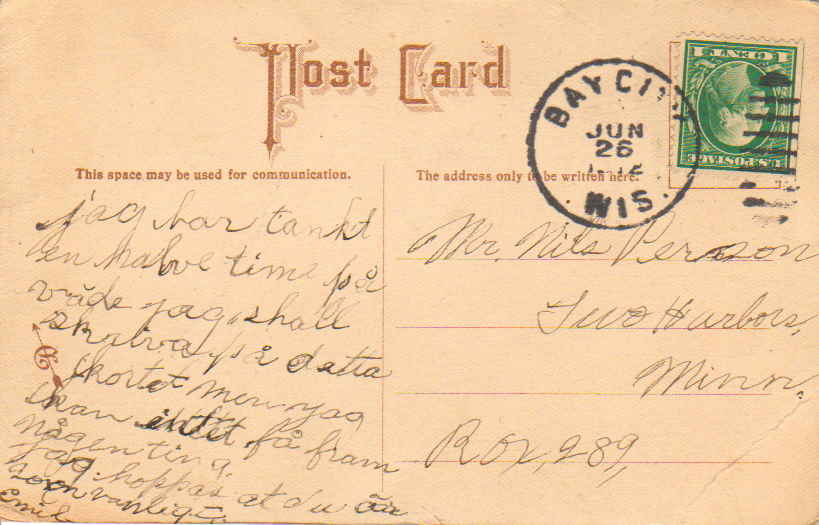 Post Card
BAY CITY
JUN
26
1912
WIS.
1 CENT 1
U.S. POSTAGE
This space may be used for communication.
The address only to be written here.
jag har tankt
en halve time på
våde jag shall
skraiva på datta
kortet men jag
kan intet få fram
någen ting
jag hoppas at du är
som vanligt
Emil
Mr. Nils Person
Two Harbors,
Minn.
Box, 289,